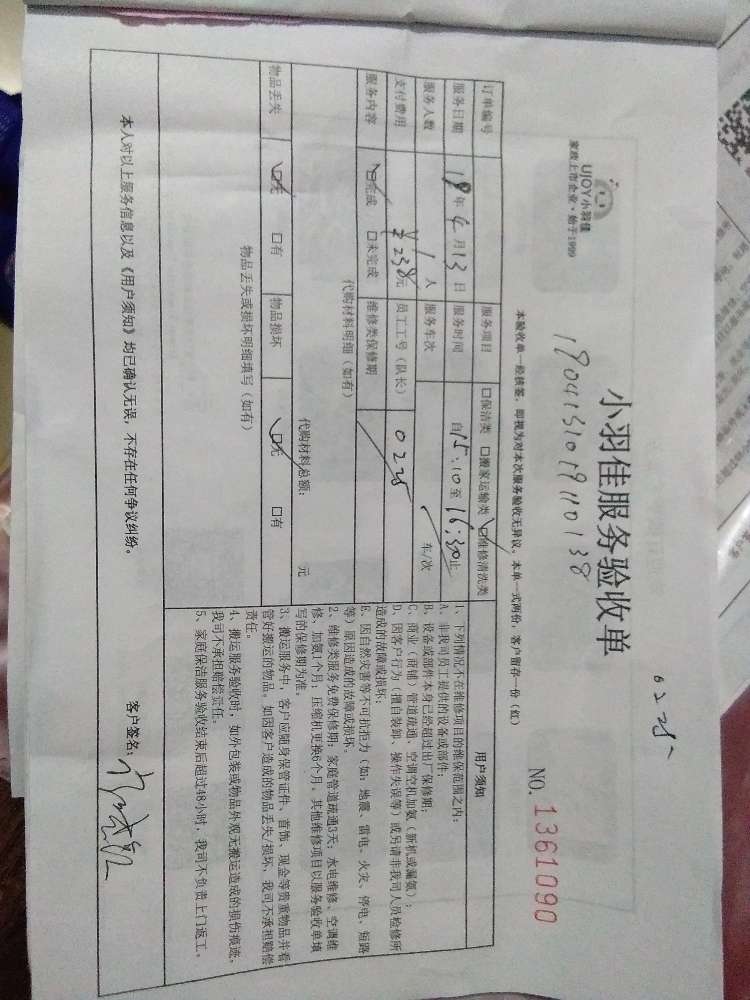 UJOY小羽佳
家政上市企业·始于1999
小羽佳服务验收单
NO. 1361090
本验收单一经核签，即视为对本次服务验收无异议。本单一式两份，客户留存一份（红）
订单编号
服务项目 □保洁类 □搬家运输类 ☑维修清洗类
服务日期 18年4月13日 服务时间 自15:10至16:30止
服务人数 1人 服务车次 车/次
支付费用 ¥238元 员工工号（队长） 0225
服务内容 ☑完成 □未完成 维修类保修期
代购材料明细（如有）
代购材料总额： 元
物品丢失 ☑无 □有 物品损坏 ☑无 □有
物品丢失或损坏明细填写（如有）
用户须知
1、下列情况不在维修项目的维保范围之内：
A、非我司员工提供的设备或部件；
B、设备或部件本身已经超过出厂保修期；
C、商业（商铺）管道疏通、空调空机加氨（新机或漏氨）；
D、因客户行为（擅自装卸、操作失误等）或另请非我司人员检修所
造成的故障或损坏；
E、因自然灾害等不可抗拒力（如：地震、雷电、火灾、停电、短路
等）原因造成的故障或损坏。
2、维修类服务免费保修期：家庭管道疏通3天；水电维修、空调维
修、加氨1个月；压缩机更换6个月，其他维修项目以服务验收单填
写的保修期为准。
3、搬运服务中，客户应随身保管证件、首饰、现金等贵重物品并看
管好搬运的物品。如因客户造成的物品丢失/损坏，我司不承担赔偿
责任。
4、搬运服务验收时，如外包装或物品外观无搬运造成的损伤痕迹，
我司不承担赔偿责任。
5、家庭保洁服务验收结束后超过48小时，我司不负责上门返工。
本人对以上服务信息以及《用户须知》均已确认无误，不存在任何争议纠纷。
客户签名：